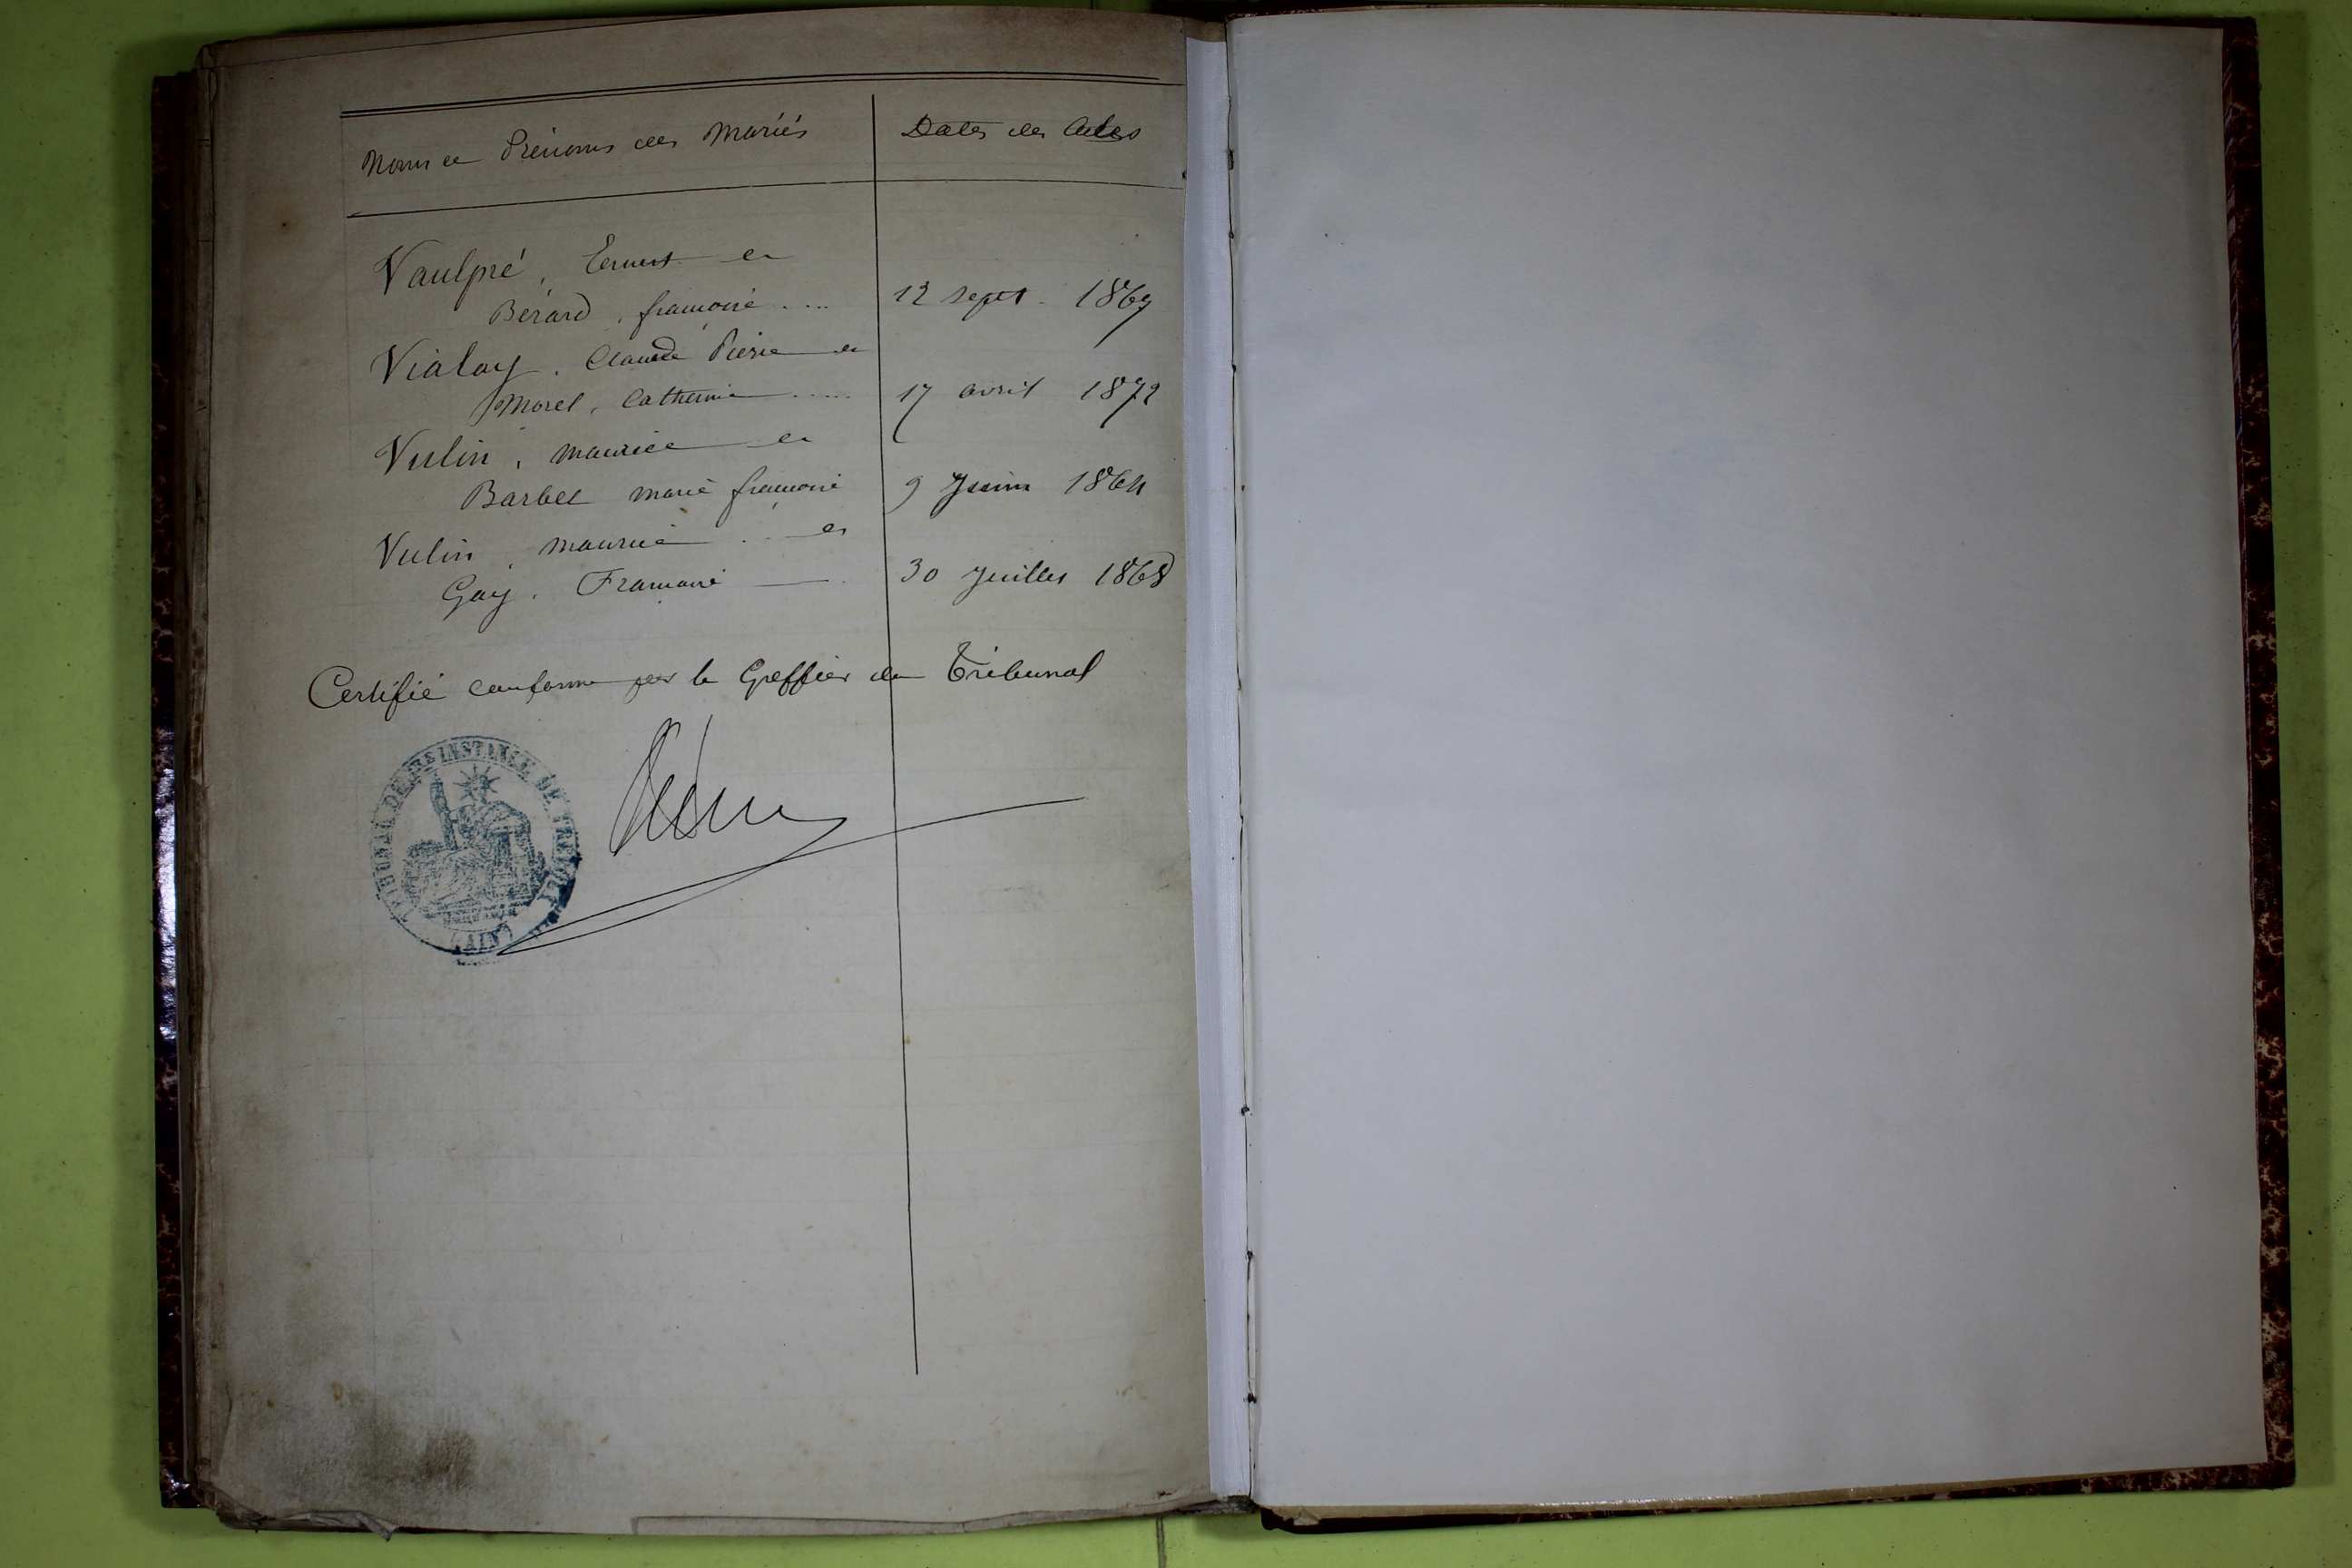 Noms et Prénoms des Mariés
Dates des Actes
Vaulpré, Ernest et
Bérard, françoise .... 12 Sept. 1869
Vialay, Claude Pierre et
Morel, Catherine ..... 17 avril 1872
Vulin, maurice et
Barbet marie françoise 9 Juin 1864
Vulin, maurice .. et
Gay, Françoise 30 Juillet 1868
Certifié conforme par le Greffier du Tribunal
TRIBUNAL DE 1RE INSTANCE DE TRÉVOUX
(AIN)